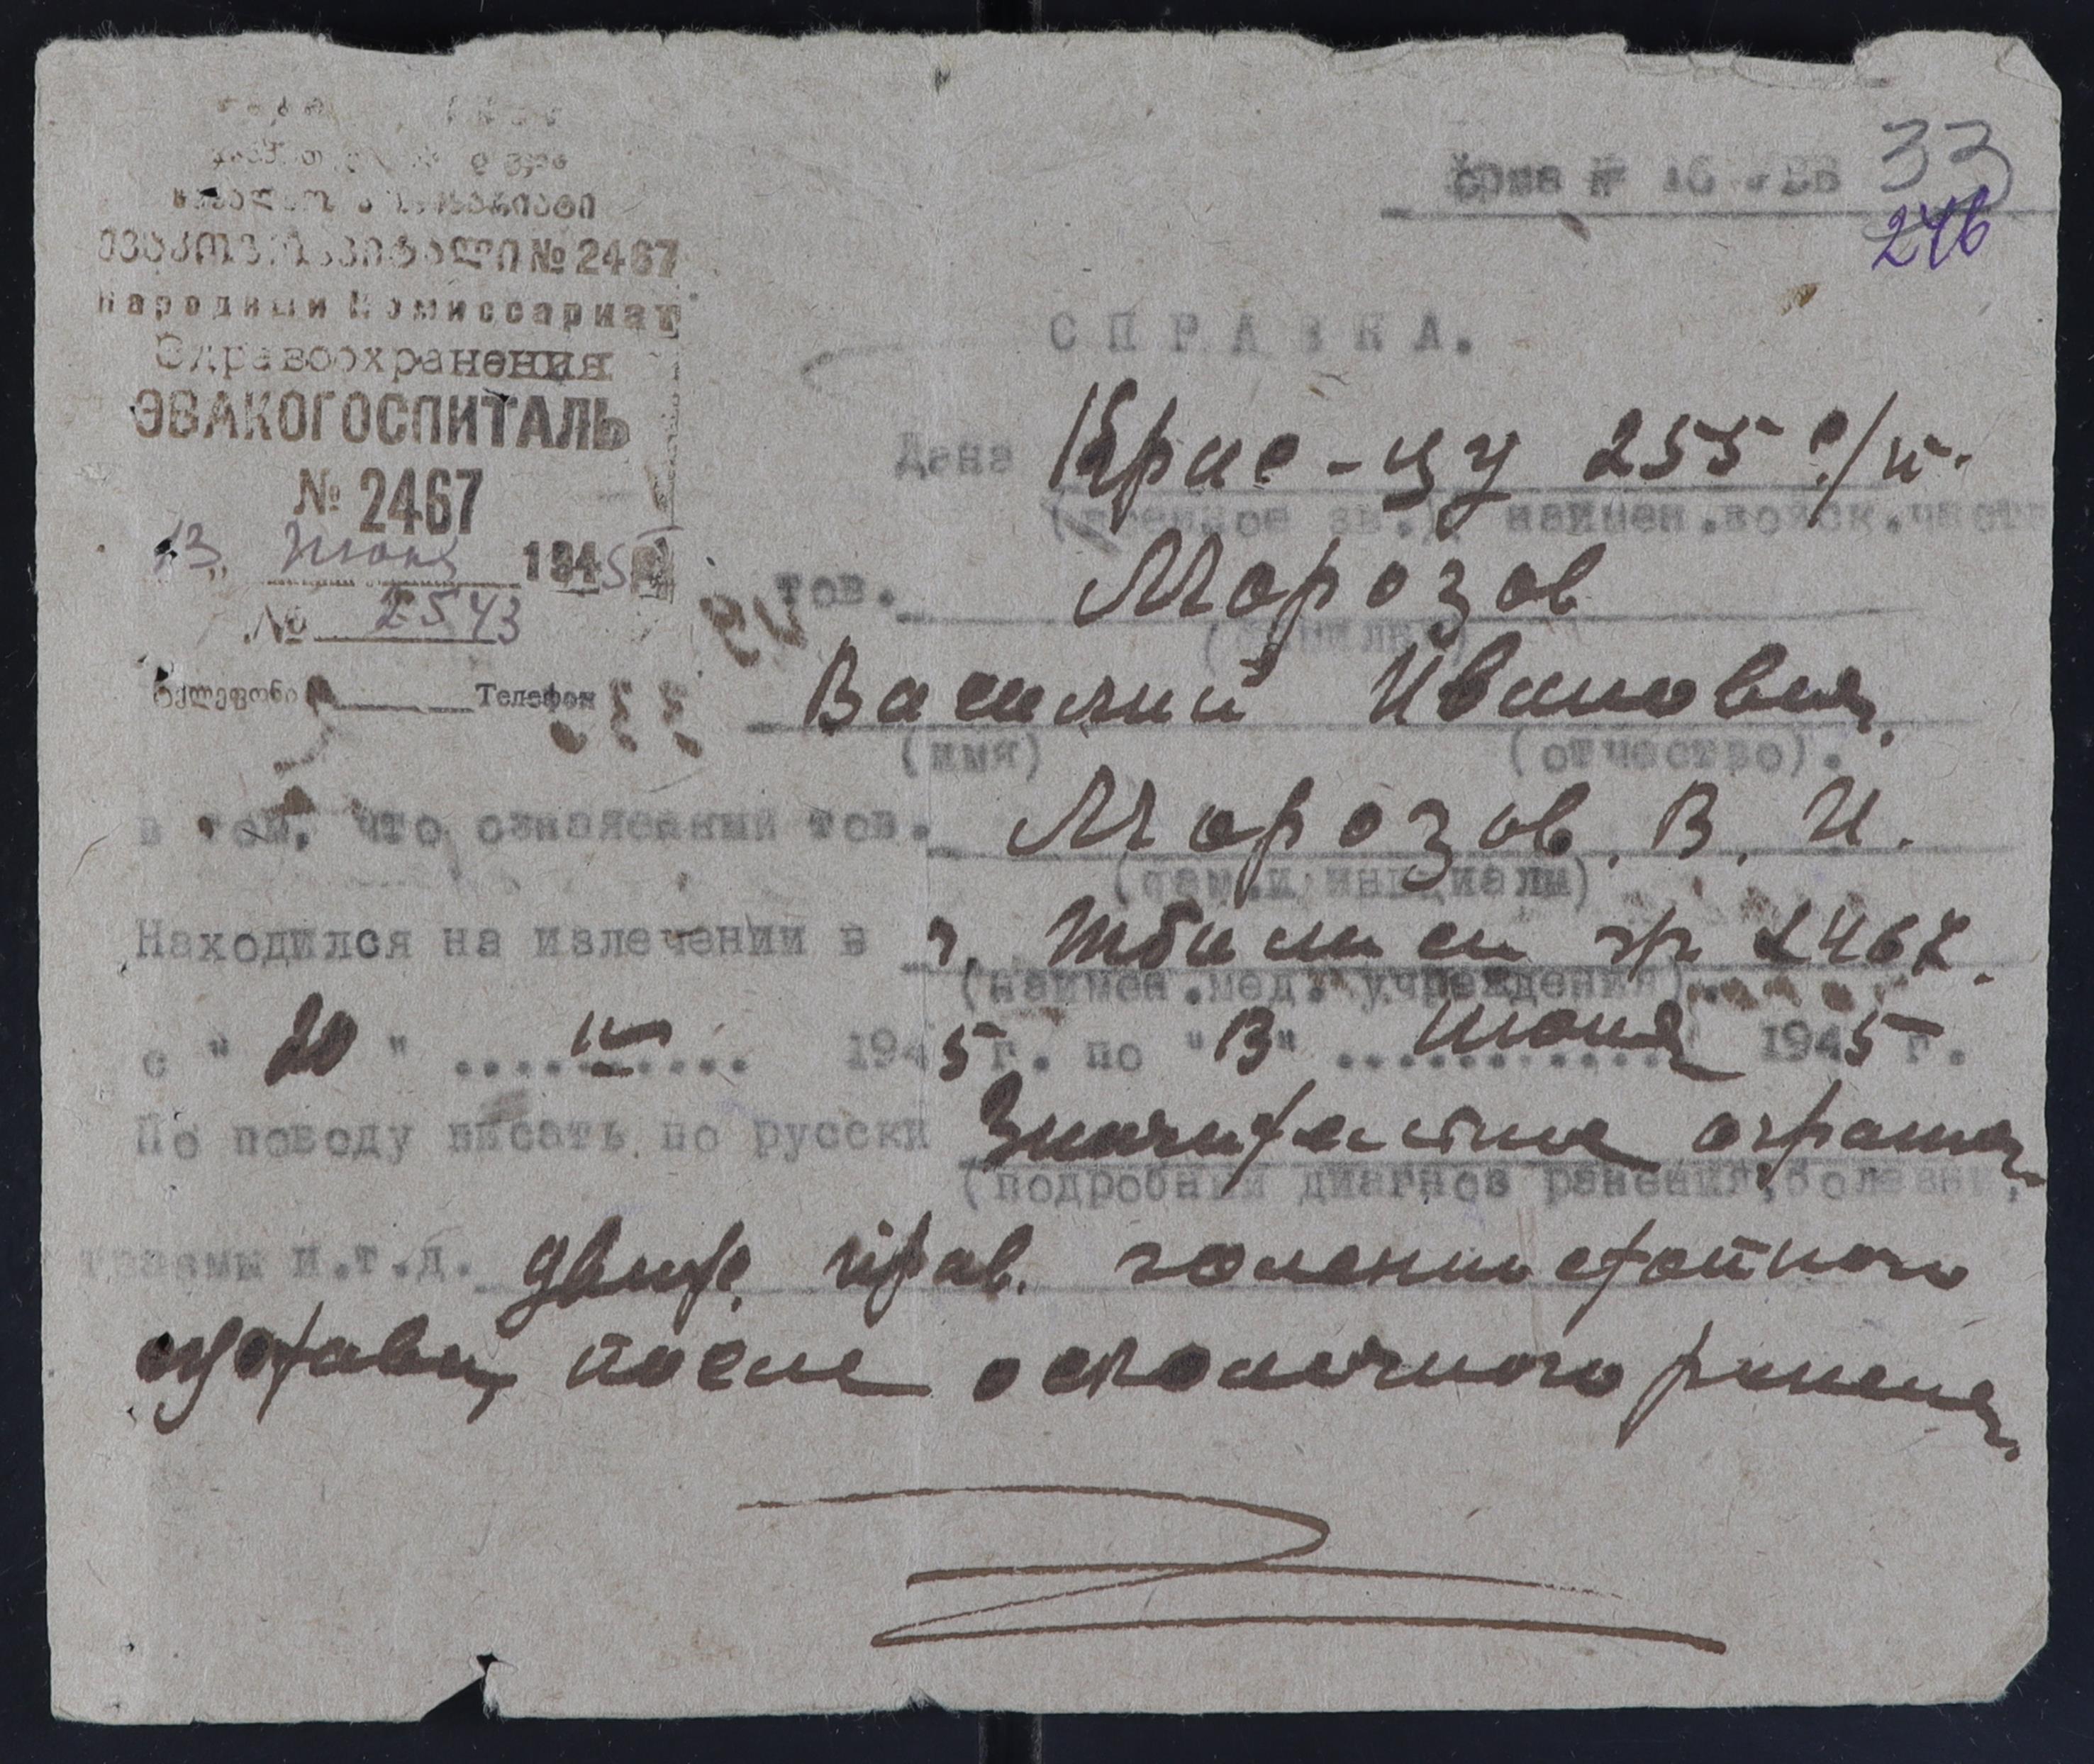 33
246
ევაკოჰოსპიტალი № 2467
Народный Комиссариат
Здравоохранения
ЭВАКОГОСПИТАЛЬ
№ 2467
13 июня 1945
№ 2543
ტელეფონი Телефон
СПРАВКА.
Дана Крас-цу 255 с/п.
(военное зв., наимен.войск.част
тов. Морозов
(фамилия)
Василий Иванович
(имя) (отчество).
в том, что означенный тов. Морозов. В. И.
(фам.и инициалы)
Находился на излечении в г. Тбилиси гп 2467.
(наимен.мед. учреждения).
с " 20 " IV 1945 г. по " 13 " июня 1945 г.
По поводу писать по русски Значительное огранич
(подробный диагноз ранения, болезни,
травмы и.т.д. движ. прав. голеностопного
сустава, после осколочного ранения